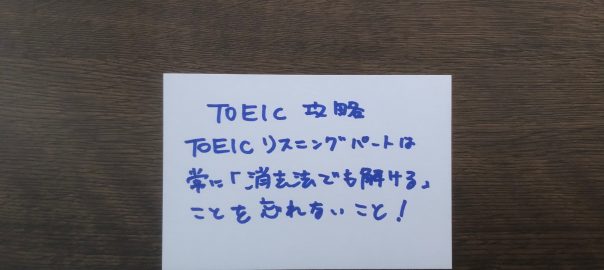 TOEIC 攻略
TOEICリスニングパートは
常に「消去法でも解ける」
ことを忘れないこと!